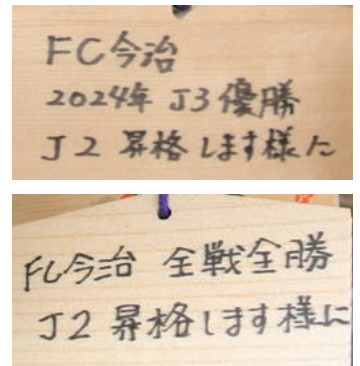 FC今治
2024年 J3優勝
J2 昇格します様に
FC今治 全戦全勝
J2 昇格します様に